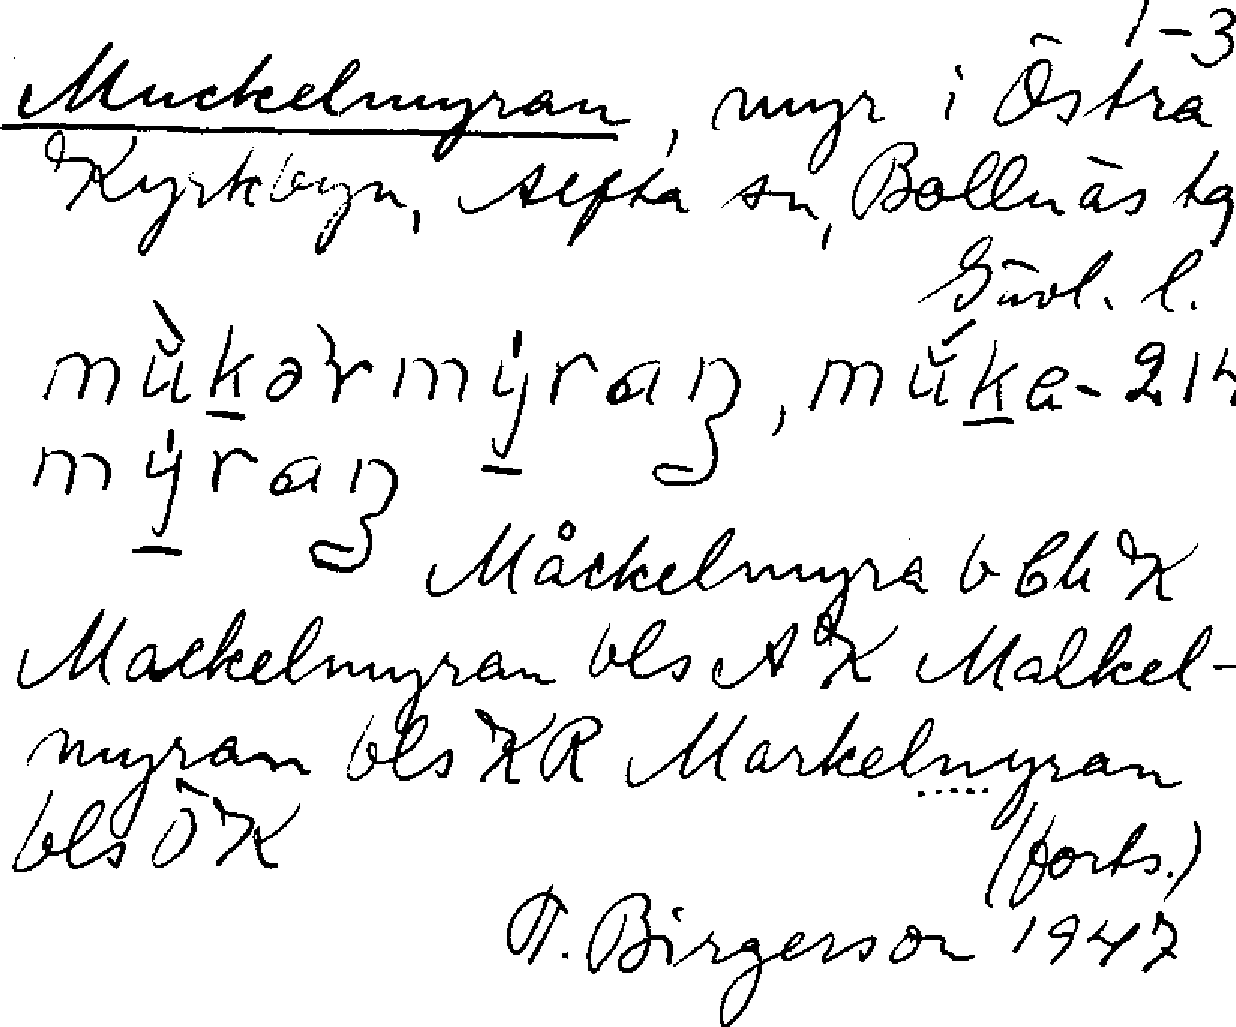 1-3
Muckelmyran, myr i Östra
Kyrkbyn, Alfta sn, Bollnäs tg
Gävl. l.
mùkərmýran, múka- 214
mýran
Måckelmyra b Ch K
Mackelmyran bls AK Malkel-
myran bls KR Markelmyran
bls ÖK
(forts.)
T. Birgerson 1947